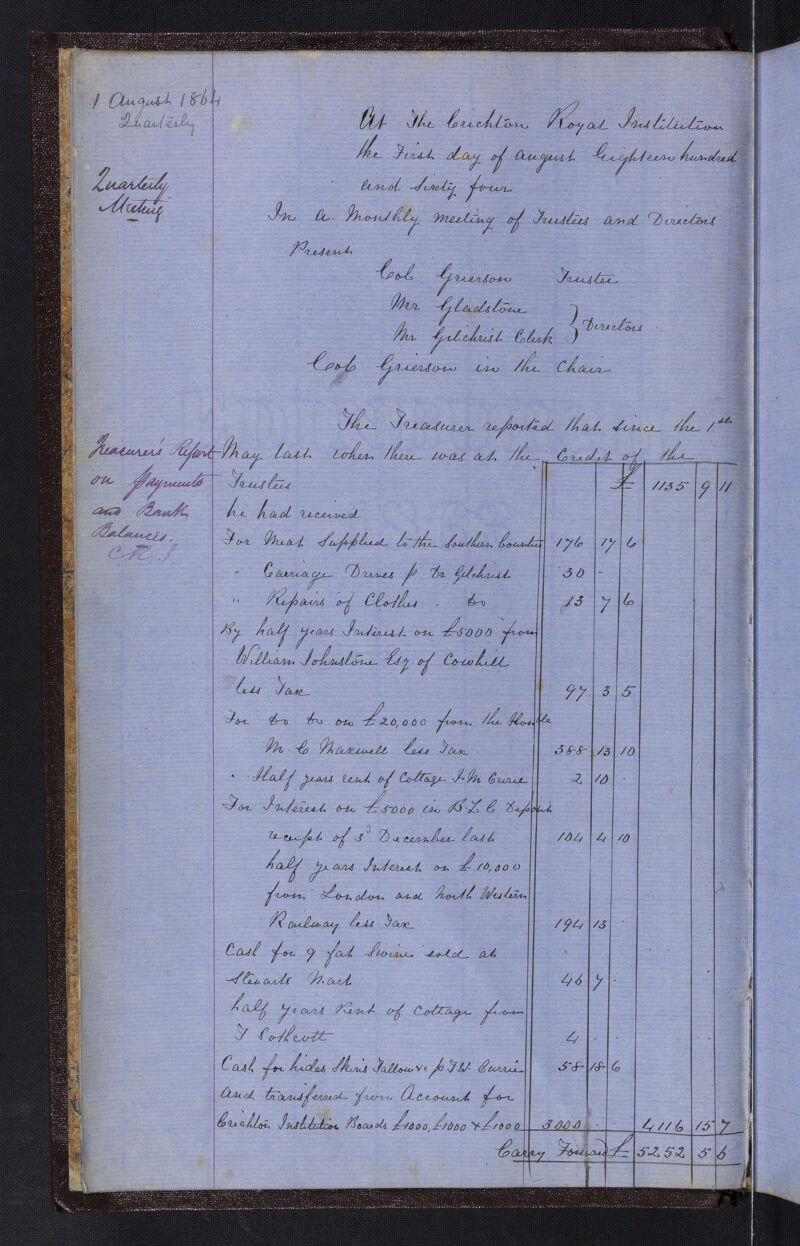 1 August 1864
Quarterly
At The Crichton Royal Institution
the First day of August Eighteen hundred
and Sixty four
Quarterly
Meeting
In a Monthly meeting of Trustees and Directors
Present
Col Grierson Trustee
Mr Gladstone
Mr Gilchrist Clerk } Directors
Col Grierson in the Chair
The Treasurer reported that since the 1st
Treasurer's Report
on Payments
and Bank
Balances.
May last when there was at the Credit of the
Trustees £ 1135 9 11
he had received
For Meat Supplied to the Southern Counties 176 17 6
" Carriage Drives p Dr Gilchrist 30 -
" Repairs of Clothes - Do 13 7 6
By half years Interest on £5000 from
William Johnstone Esq of Cowhill
less Tax 97 3 5
For Do Do on £20,000 from the Honble
M. C. Maxwell less Tax 388 13 10
" Half years rent of Cottage J. M. Currie 2 10 -
For Interest on £5000 in B L C Deposit
receipt of 3d December last 104 4 10
half years Interest on £10,000
from London and North Western
Railway less Tax 194 13
Cash for 9 fat Swine sold at
Stewarts Mart 46 7 -
half years Rent of Cottage from
T Sothcott 4 - -
Cash for hides Skins Tallow &c p J.W. Currie 58 18 6
and transferred from Account for
Crichton Institution Boards £1000, £1000 & £1000 3000 - - 4116 15 7
Carry Forward £ 5252 5 6